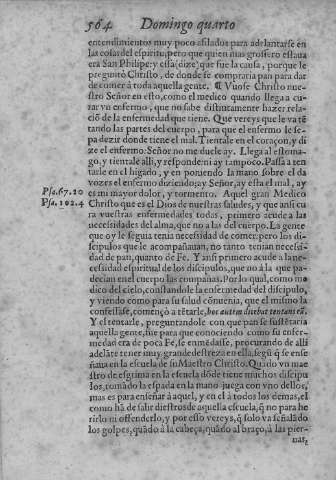 564 Domingo quarto
entendimientos muy poco afilados para adelantarse en
las cosas del espiritu, pero que quien mas grossero estaua
era San Philipe: y essa (dize) que fue la causa, porque le
preguntò Christo, de donde se compraria pan para dar
de comer à toda aquella gente. ¶ Vuose Christo nues-
tro Señor en esto, como el medico quando llega a cu-
rar vn enfermo, que no sabe distinctamente hazer rela-
ciõ de la enfermedad que tiene. Que vereys que le va tẽ
tando las partes del cuerpo, para que el enfermo le se-
pa dezir donde tiene el mal. Tientale en el coraçon, y di
ze el enfermo Señor no me duele ay. Llega al estoma-
go, y tientale alli, y responde ni ay tampoco. Passa a ten
tarle en el higado, y en poniendo la mano sobre el da
vozes el enfermo diziendo: ay Señor, ay essa el mal, ay
Psa. 67. 20 es mi mayor dolor, y tormento. Aquel gran Medico
Psa. 102. 4 Christo que es el Dios de nuestras saludes, y que ansi cu
ra vuestras enfermedades todas, primero acude a las
necessidades del alma, que no a las del cuerpo. La gente
que oy le seguia tenia necessidad de comer: pero los di-
scipulos que le acompañauan, no tanto tenian necessi-
dad de pan, quanto de Fe. Y ansi primero acude a la ne-
cessidad espiritual de los discipulos, que no à la que pa-
decian en el cuerpo las compañas. Por lo qual, como me
dico del cielo, constandole la enfermedad del discipulo,
y viendo como para su salud cõuenia, que el mismo la
confessasse, començò a tẽtarle, hoc autem dicebat tentans eũ.
Y el tentarle, preguntandole con que pan se sustẽtaria
aquella gente, fue para que conociendo como su enfer-
medad era de poca Fe, se enmẽdasse, procurando de alli
adelãte tener muy grande destreza en ella, segũ q̃ se ense
ñaua en la escuela de su Maestro Christo. Quãdo vn mae
stro de esgrima en la escuela dõde tiene muchos discipu
los, tomãdo la espada en la mano juega con vno dellos,
mas es para enseñar à aquel, y en el à todos los demas, el
como hã de salir diestros de aquella escuela, q̃ no para he
rirlo ni offenderlo, y por esso vereys, q̃ solo va señalãdo
los golpes, quãdo à la cabeça, quãdo al braço, à las pier-
nas,